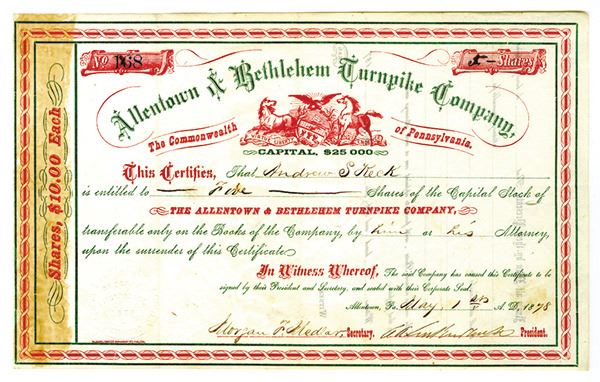 No. 168
5 - Shares
Allentown & Bethlehem Turnpike Company,
The Commonwealth of Pennsylvania.
CAPITAL, $25 000
Shares, $10,00 Each
This Certifies, That Andrew S Keck
is entitled to Five Shares of the Capital Stock of
THE ALLENTOWN & BETHLEHEM TURNPIKE COMPANY,
transferable only on the Books of the Company, by him or his Attorney,
upon the surrender of this Certificate
In Witness Whereof, The said Company has caused this Certificate to be
signed by their President and Secretary, and sealed with their Corporate Seal.
Allentown, Pa. May 1st A.D. 1878
Morgan F. Medlar Secretary. President.